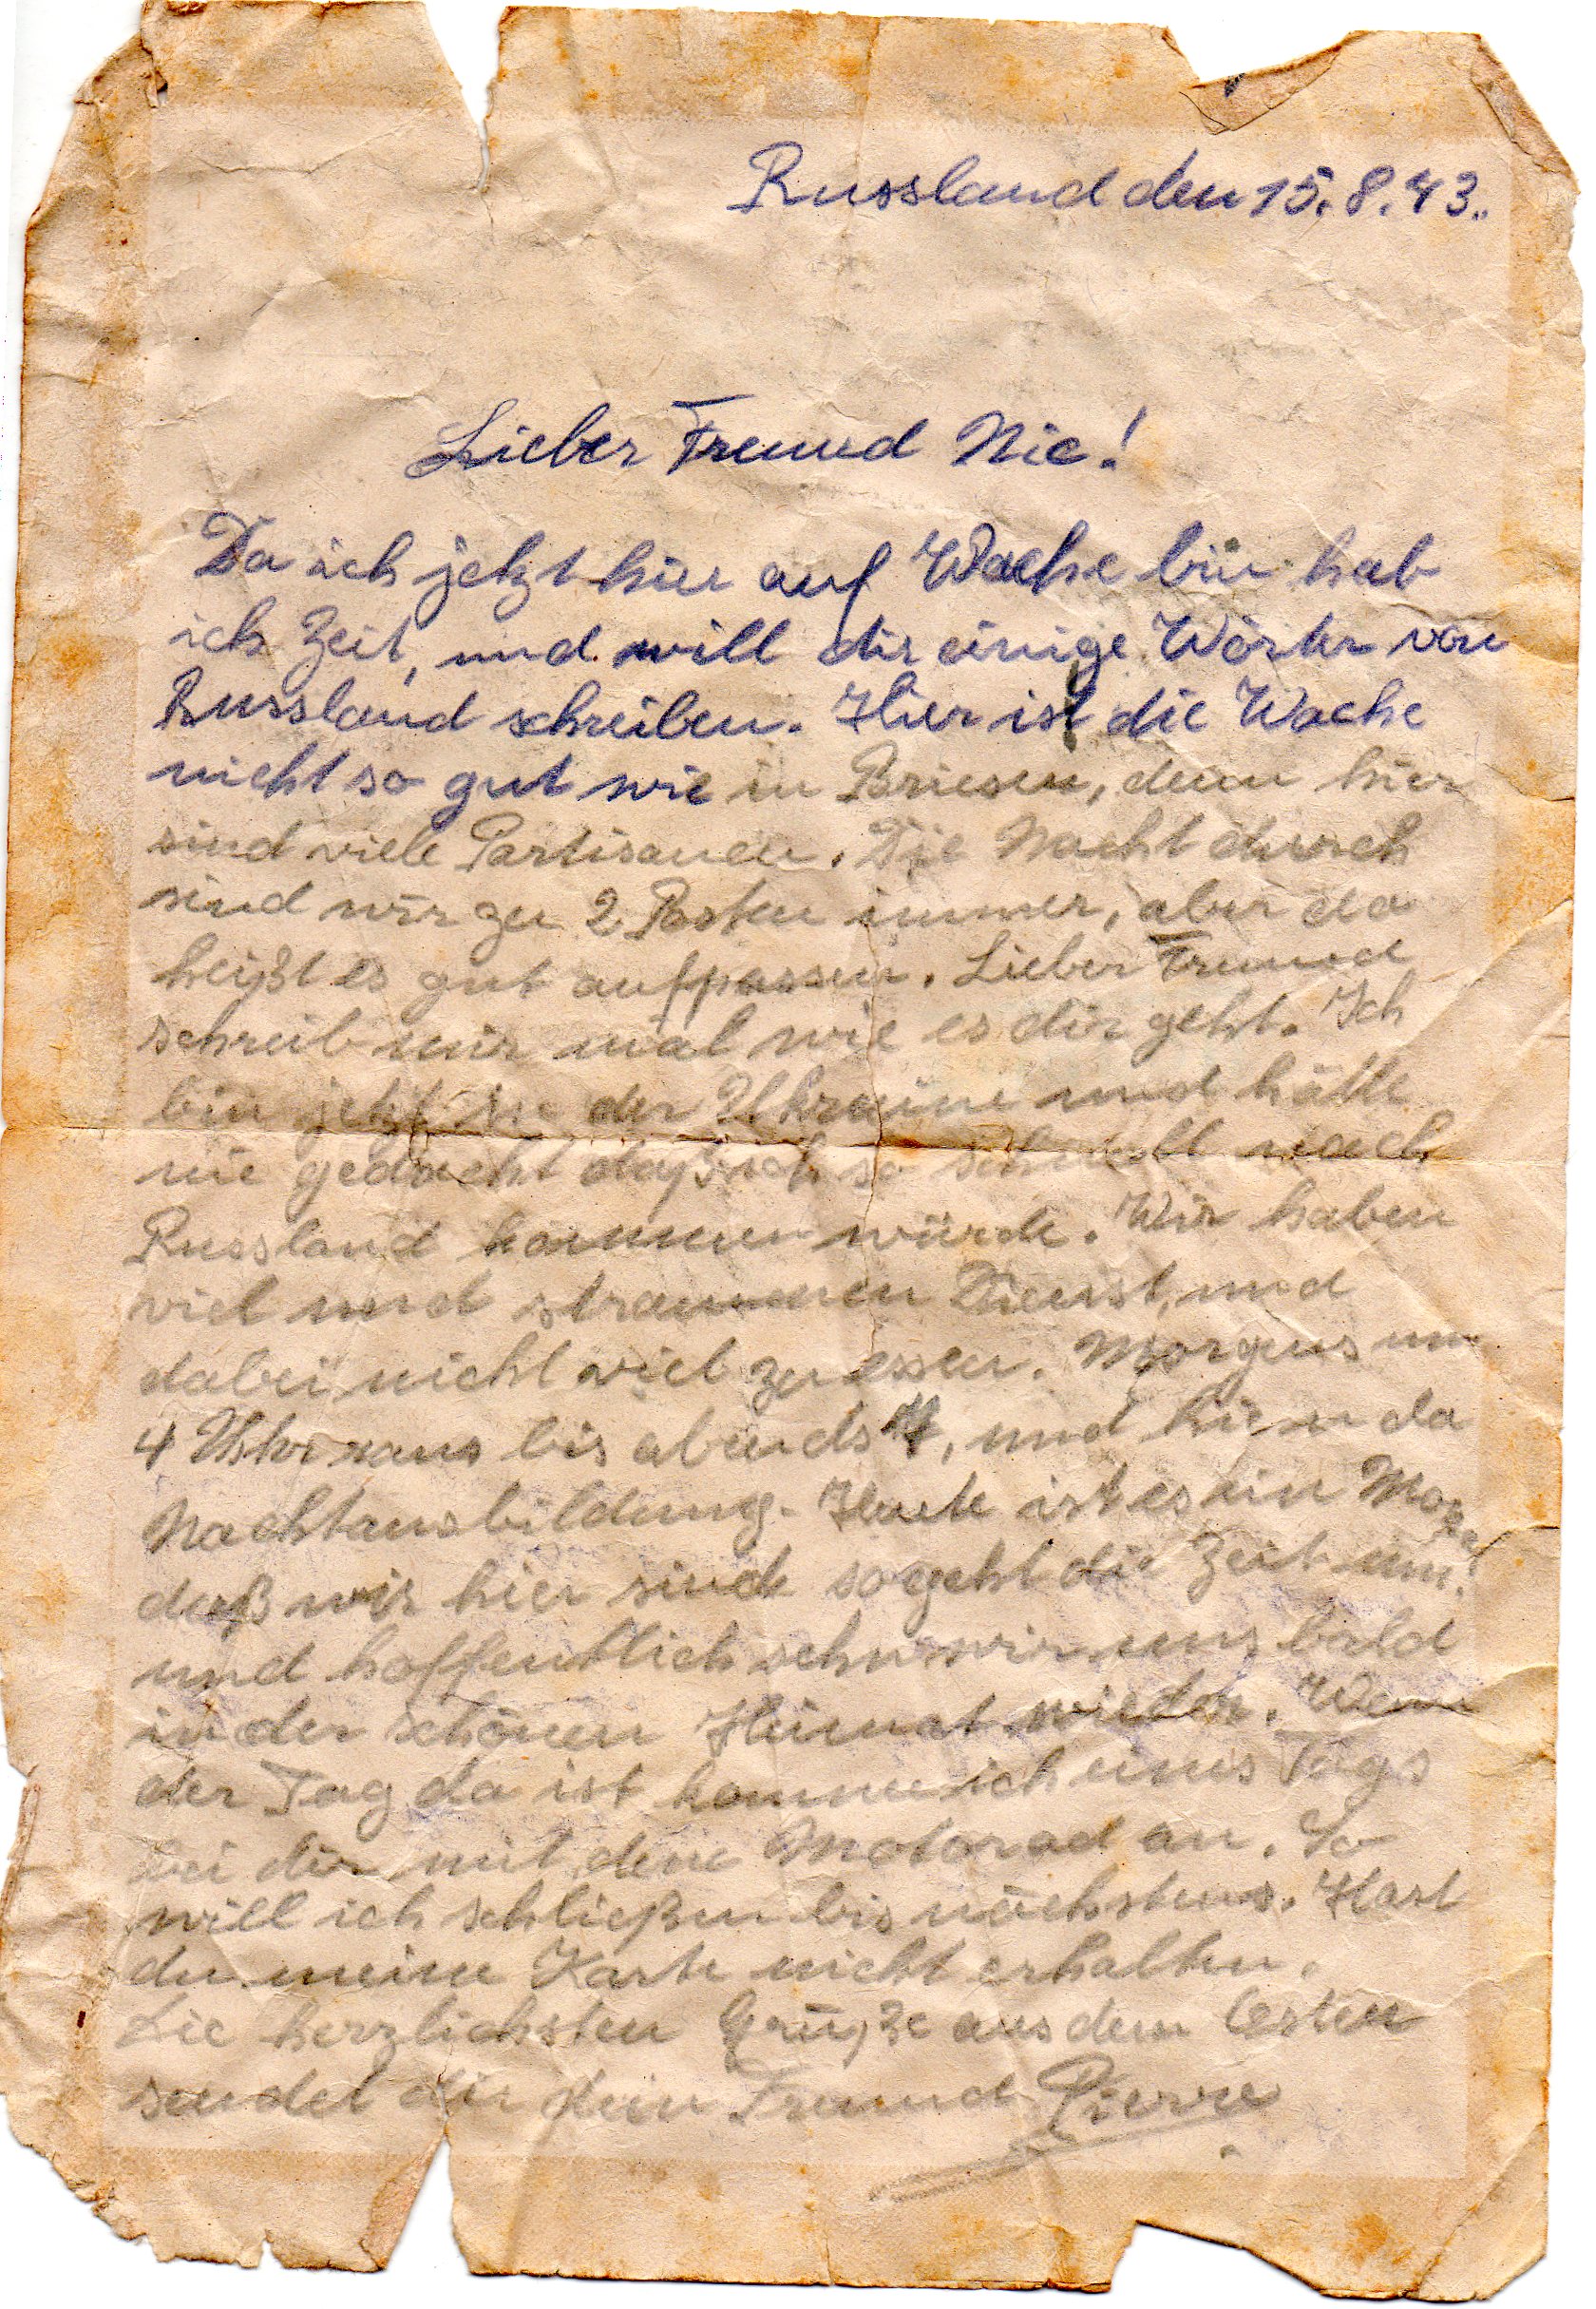 Russland den 15.8.43.
Lieber Freund Nic!
Da ich jetzt hier auf Wache bin hab
ich Zeit, und will dir einige Wörter von
Russland schreiben. Hier ist die Wache
nicht so gut wie in Briesen, denn hier
sind viele Partisanen. Die Nacht durch
sind wir zu 2 Posten immer, aber da
heißt es gut aufpassen. Lieber Freund
schreib mir mal wie es dir geht. Ich
bin jetzt in der Ukraine und hätte
nie gedacht daß ich so schnell nach
Russland kommen würde. Wir haben
viel und strammen Dienst, und
dabei nicht viel zu essen. Morgens um
4 Uhr raus bis abends, und hie u da
Nachtausbildung. Heute ist es ein
daß wir hier sind so geht die Zeit um.
und hoffentlich sehn wir uns bald
in der schönen Heimat wieder. Wenn
der Tag da ist komme ich eines Tags
bei dir mit dem Motorad an. So
will ich schließen bis nächstens. Hast
du meine Karte nicht erhalten.
Die herzlichsten Grüße aus dem Osten
sendet dir dein Freund Pierre